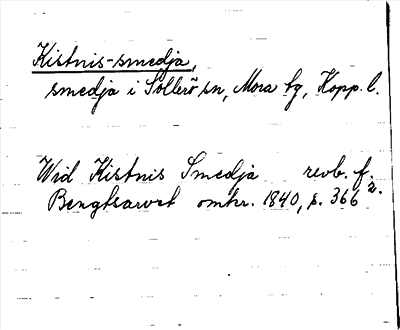 Kistnis-smedja,
smedja i Sollerö sn, Mora tg, Kopp. l.
Wid Kistnis Smedja revb. f.
Bengtsarvet omkr. 1840, s. 366 2.